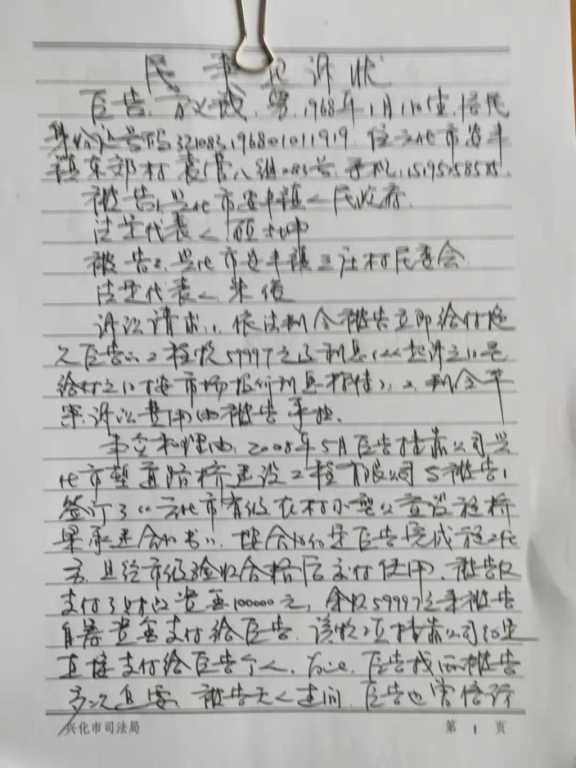 民事起诉状
原告 男 1968年1月1日生 居民
身份证号码321083196801011919 住兴化市安丰
镇东郊村 八组 号 手机
被告1 兴化市安丰镇人民政府
法定代表人
被告2 兴化市安丰镇三社村民委会
法定代表人 朱俊
诉讼请求 1、依法判令被告立即给付拖
欠原告的工程款59997元及利息(从起诉之日起
给付之日按市场报价利息 ) 2、判令本
案诉讼费用由被告承担
事实和理由 2008年5月原告挂靠公司兴
化市 路桥建设工程有限公司与被告1
签订了《兴化市 农村小型公益设施桥
梁承建合同书》 按合同约定原告完成工程任
务 且经市级验收合格后交付使用 被告仅
支付了 资金100000元 余款59997元系被告
自筹资金支付给原告 该款项挂靠公司约定
直接支付给原告个人 原告找 被告
多次 要 被告无人过问 原告也曾信访
兴化市司法局
第 1 页